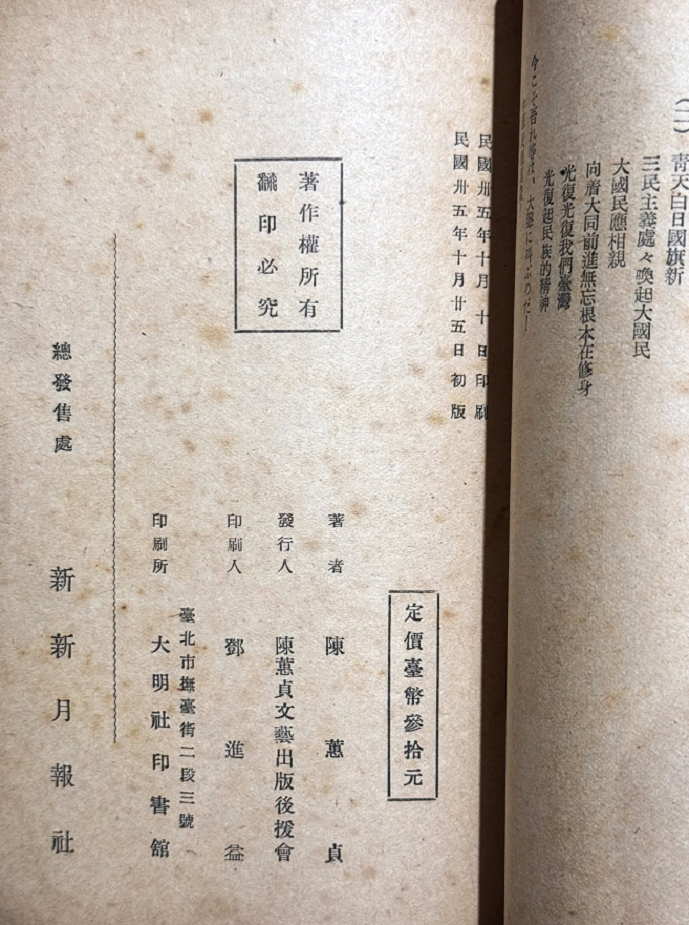 (二) 青天白日國旗新
三民主義處々喚起大國民
大國民應相親
向着大同前進無忘根本在修身
光復光復我們臺灣
光復起民族的精神
今こそ吾れ大聲に叫ぶのだ！
民國卅五年十月十日印刷
民國卅五年十月廿五日初版
定價臺幣參拾元
著作權所有
翻印必究
著者 陳蕙貞
發行人 陳蕙貞文藝出版後援會
印刷人 鄧進益
臺北市撫臺街二段三號
印刷所 大明社印書館
總發售處 新新月報社